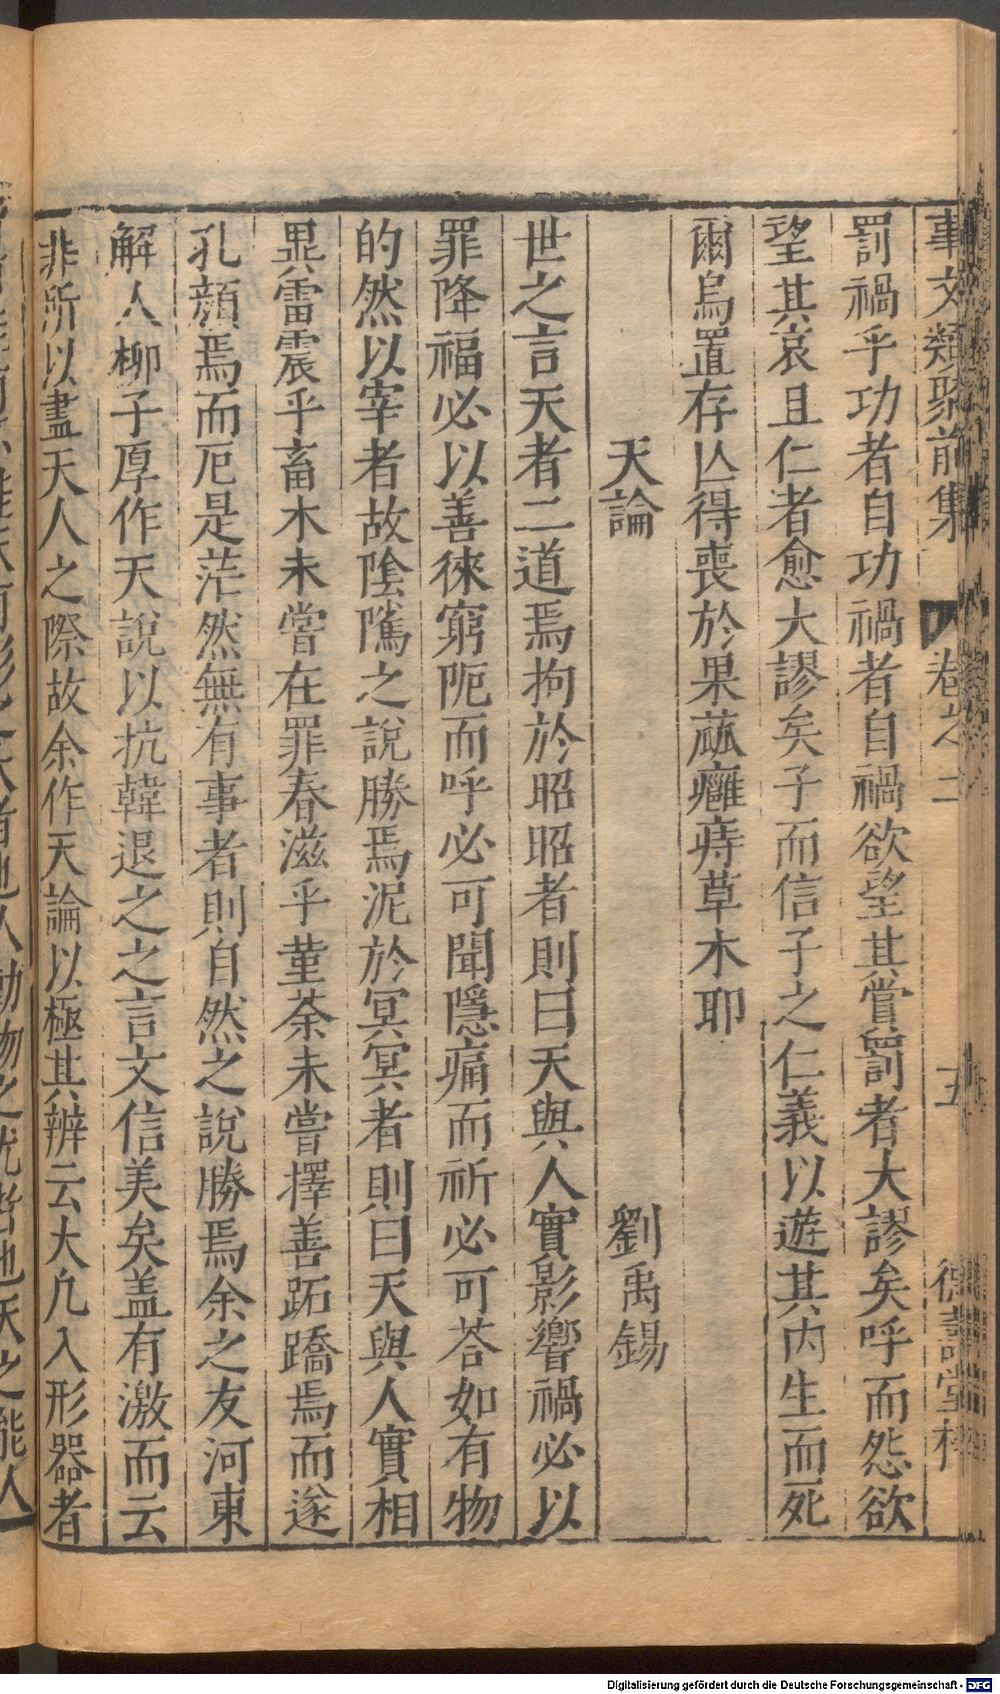 事文類聚前集 卷之二 五 德壽堂梓
罰禍乎功者自功禍者自禍欲望其賞罰者大謬矣呼而怨欲
望其哀且仁者愈大謬矣子而信子之仁義以遊其内生而死
爾烏置存亾得喪於果蓏癰痔草木耶
天論 劉禹錫
世之言天者二道焉拘於昭昭者則曰天與人實影響禍必以
罪降福必以善徠窮阨而呼必可聞隱痛而祈必可荅如有物
的然以宰者故隂隲之說勝焉泥於冥冥者則曰天與人實相
異雷震乎畜木未嘗在罪春滋乎菫荼未嘗擇善跖蹻焉而遂
孔顔焉而厄是茫然無有事者則自然之說勝焉余之友河東
解人柳子厚作天說以抗韓退之之言文信美矣盖有激而云
非所以盡天人之際故余作天論以極其辨云大凡入形器者
動物之尤者也天之能人
Digitalisierung gefördert durch die Deutsche Forschungsgemeinschaft - DFG